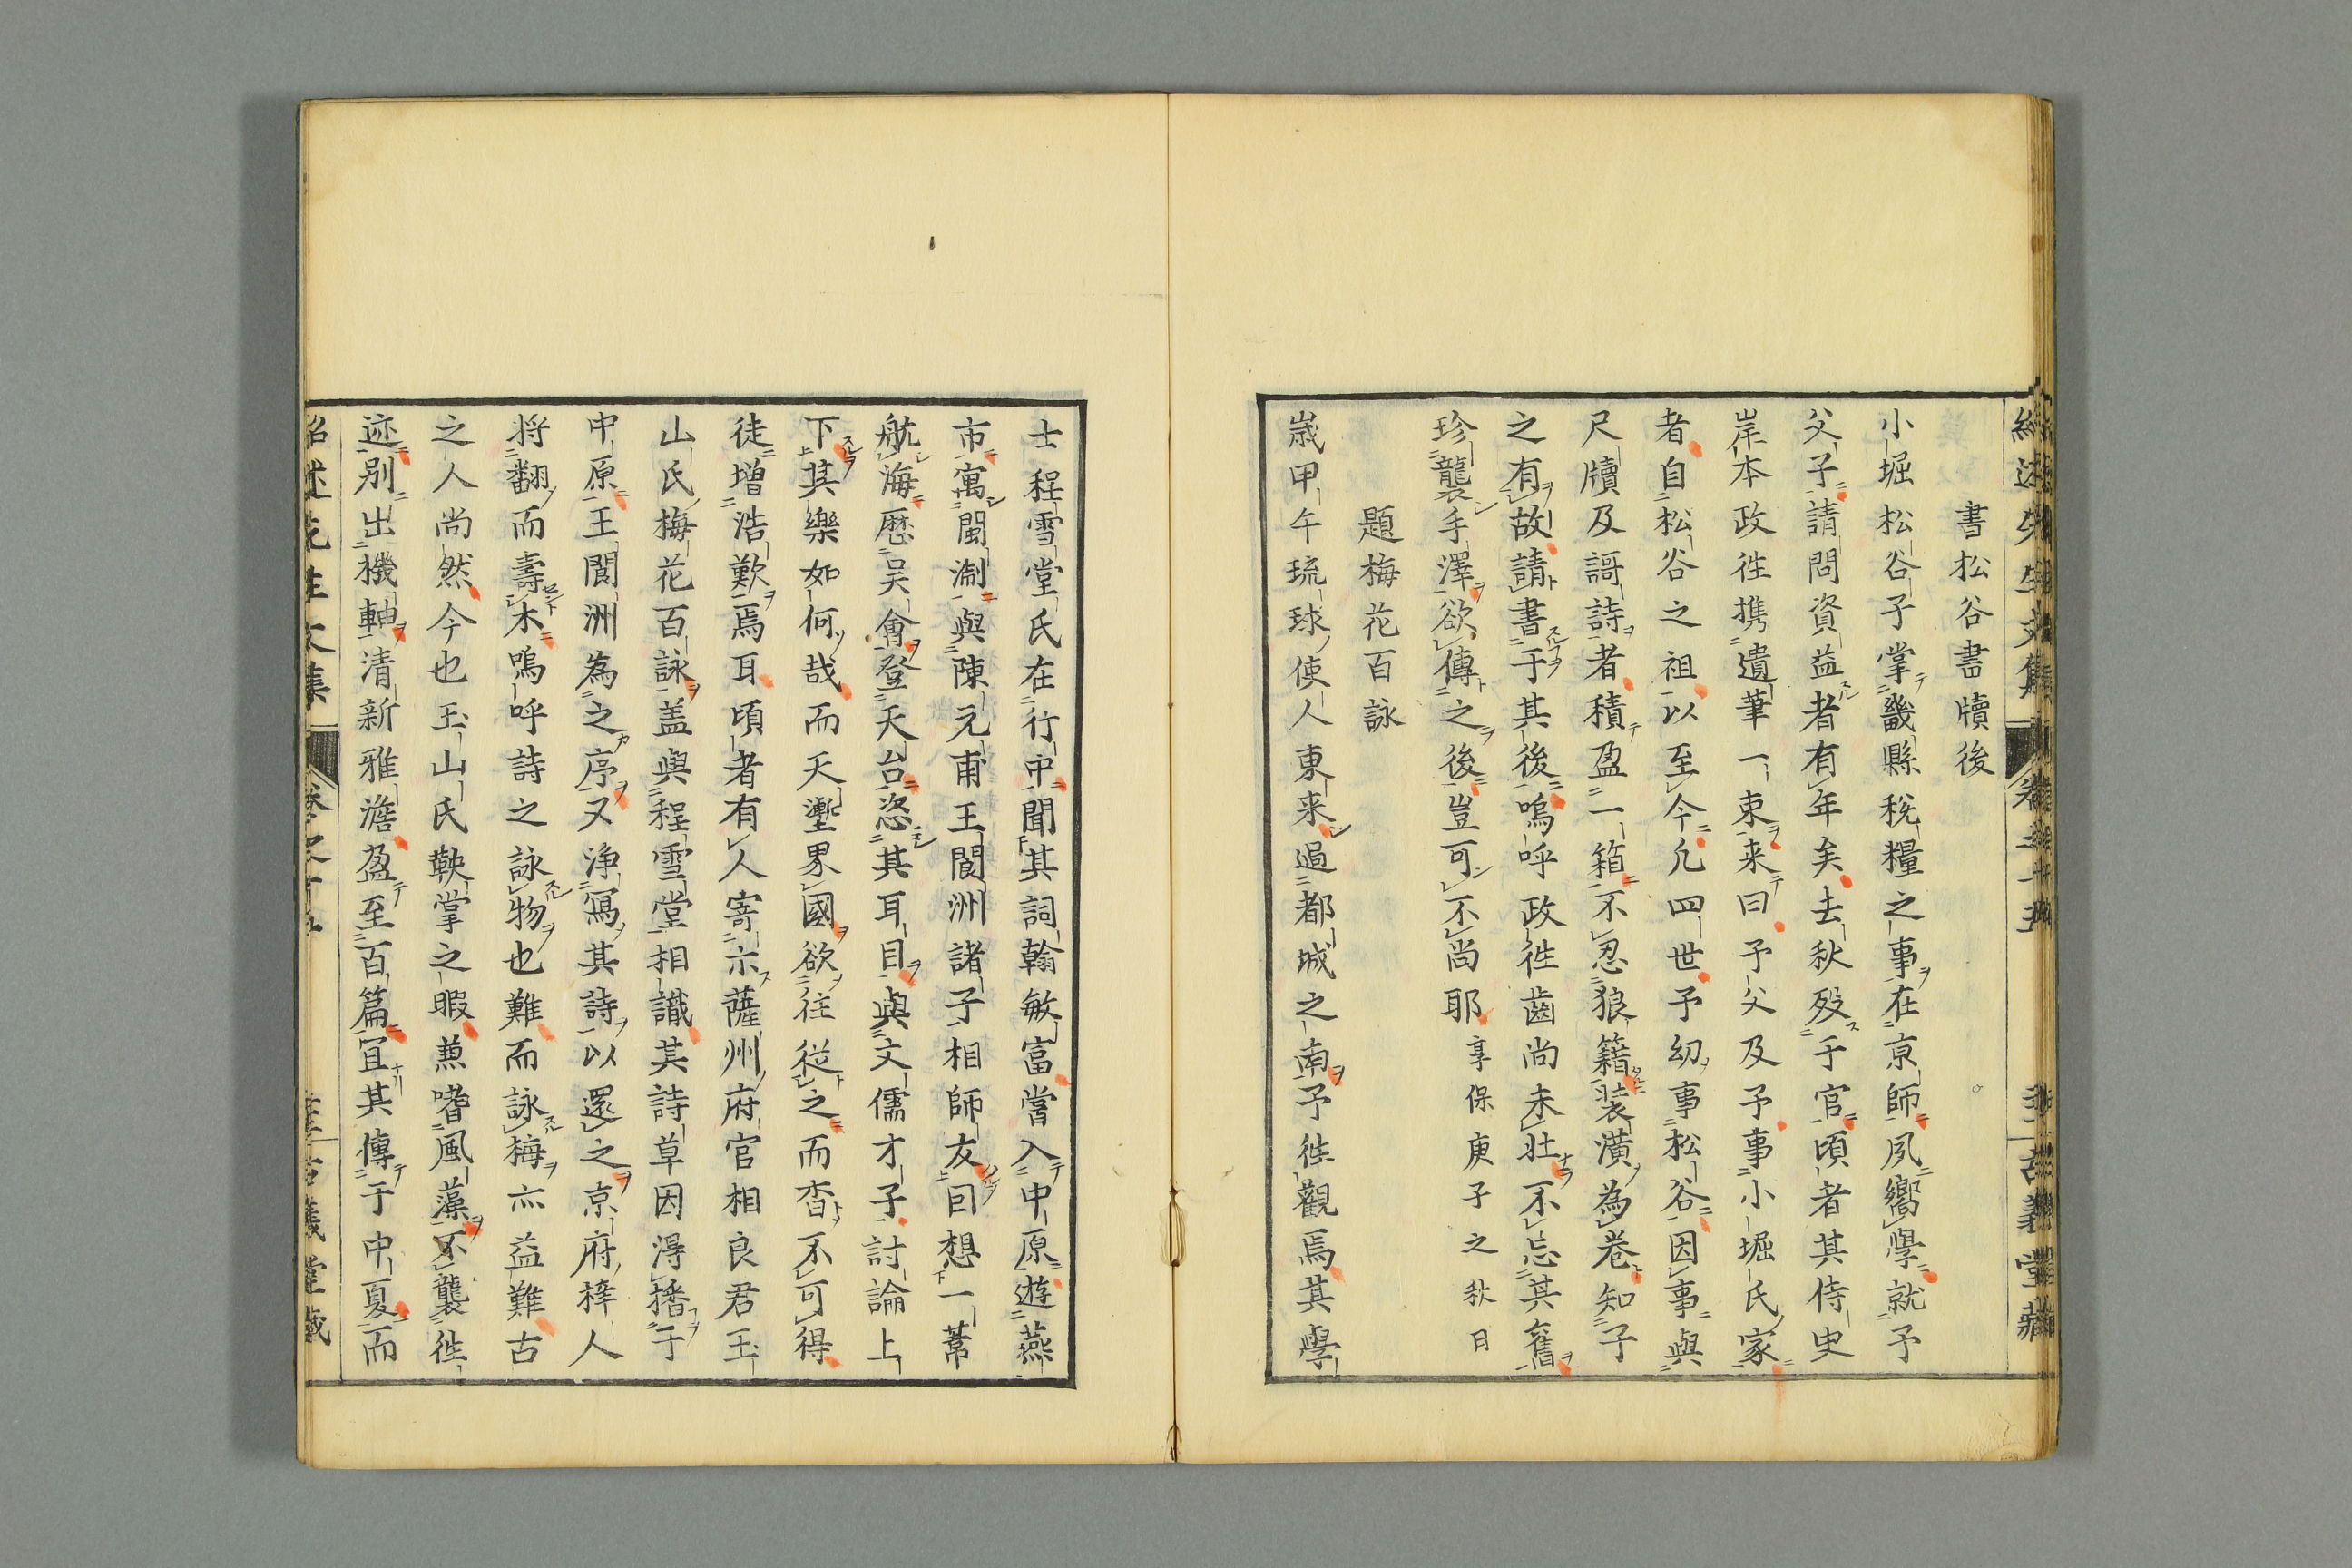 書松谷書牘後
小堀松谷子掌畿縣稅糧之事在京師夙嚮學就予
父子請問資益者有年矣去秋殁于官頃者其侍史
岸本政徃携遺筆一束来曰予父及予事小堀氏家
者自松谷之祖以至今凢四世予幼事松谷因事與
尺牘及謌詩者積盈一箱不忍狼籍装潢為卷知子
之有故請書于其後嗚呼政徃齒尚未壮不忘其舊
珍襲手澤欲傳之後豈可不尚耶享保庚子之秋日
題梅花百詠
歳甲午琉球使人東来過都城之南予徃觀焉其學
士程雪堂氏在行中聞其詞翰敏富嘗入中原遊燕
市寓閩淛與陳元甫王閬洲諸子相師友囙想一葦
航海歴吴會登天台恣其耳目與文儒才子討論上
下其樂如何哉而天塹界國欲往從之而杳不可得
徒増浩歎焉耳頃者有人寄示薩州府官相良君玉
山氏梅花百詠盖與程雪堂相識其詩草因淂播于
中原王閬洲為之序又浄寫其詩以還之京府梓人
将翻而壽木嗚呼詩之詠物也難而詠梅亦益難古
之人尚然今也玉山氏鞅掌之暇兼嗜風藻不襲徃
迹別出機軸清新雅澹盈至百篇冝其傳于中夏而